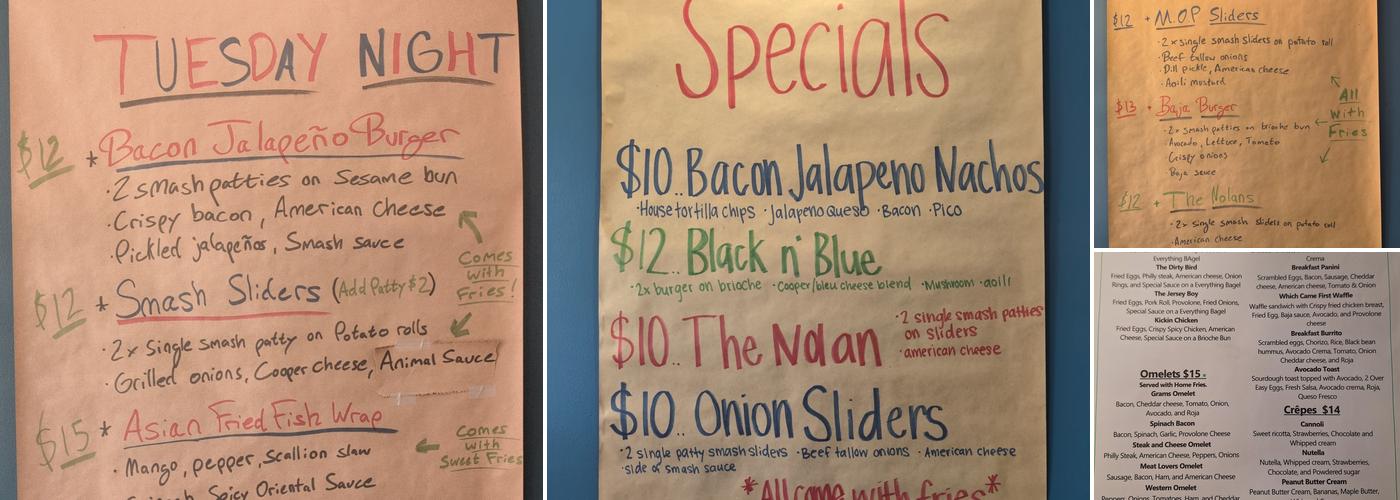 TUESDAY NIGHT
$12 * Bacon Jalapeño Burger
· 2 smash patties on Sesame bun
· Crispy bacon, American Cheese
· Pickled jalapeños, Smash sauce
Comes
with
Fries!
$12 * Smash Sliders (Add Patty $2)
· 2x Single smash patty on Potato rolls
· Grilled onions, Cooper cheese, Animal Sauce
$15 * Asian Fried Fish Wrap
Comes
with
Sweet Fries
· Mango, pepper, scallion slaw
Spicy Oriental Sauce
Specials
$10.. Bacon Jalapeno Nachos
· House tortilla chips · Jalapeno Queso · Bacon · Pico
$12.. Black n' Blue
· 2x burger on brioche · Cooper/bleu cheese blend · Mushroom · aoili
$10.. The Nolan
· 2 single smash patties
on sliders
· american cheese
$10.. Onion Sliders
· 2 single patty smash sliders · Beef tallow onions · American cheese
· side of smash sauce
*All come with fries*
$12 + M.O.P Sliders
· 2x single smash sliders on potato roll
· Beef tallow onions
· Dill pickle, American cheese
· Aoili mustard
All
with
Fries
$13 + Baja Burger
· 2x smash patties on brioche bun
· Avocado, Lettuce, Tomato
Crispy onions
· Baja sauce
$12 + The Nolans
· 2x single smash sliders on potato roll
· American cheese
Everything BAgel
The Dirty Bird
Fried Eggs, Philly steak, American cheese, Onion
Rings, and Special Sauce on a Everything Bagel
The Jersey Boy
Fried Eggs, Pork Roll, Provolone, Fried Onions,
Special Sauce on a Everything Bagel
Kickin Chicken
Fried Eggs, Crispy Spicy Chicken, American
Cheese, Special Sauce on a Brioche Bun
Omelets $15
Served with Home Fries.
Grams Omelet
Bacon, Cheddar cheese, Tomato, Onion,
Avocado, and Roja
Spinach Bacon
Bacon, Spinach, Garlic, Provolone Cheese
Steak and Cheese Omelet
Philly Steak, American Cheese, Peppers, Onions
Meat Lovers Omelet
Sausage, Bacon, Ham, and American Cheese
Western Omelet
Peppers, Onions, Tomatoes, Ham, and Cheddar
Crema
Breakfast Panini
Scrambled Eggs, Bacon, Sausage, Cheddar
cheese, American cheese, Tomato & Onion
Which Came First Waffle
Waffle sandwich with Crispy fried chicken breast,
Fried Egg, Baja sauce, Avocado, and Provolone
cheese
Breakfast Burrito
Scrambled eggs, Chorizo, Rice, Black bean
hummus, Avocado Crema, Tomato, Onion
Cheddar cheese, and Roja
Avocado Toast
Sourdough toast topped with Avocado, 2 Over
Easy Eggs, Fresh Salsa, Avocado crema, Roja,
Queso Fresco
Crêpes $14
Cannoli
Sweet ricotta, Strawberries, Chocolate and
Whipped cream
Nutella
Nutella, Whipped cream, Strawberries,
Chocolate, and Powdered sugar
Peanut Butter Cream
Peanut Butter Cream, Bananas, Maple Butter,